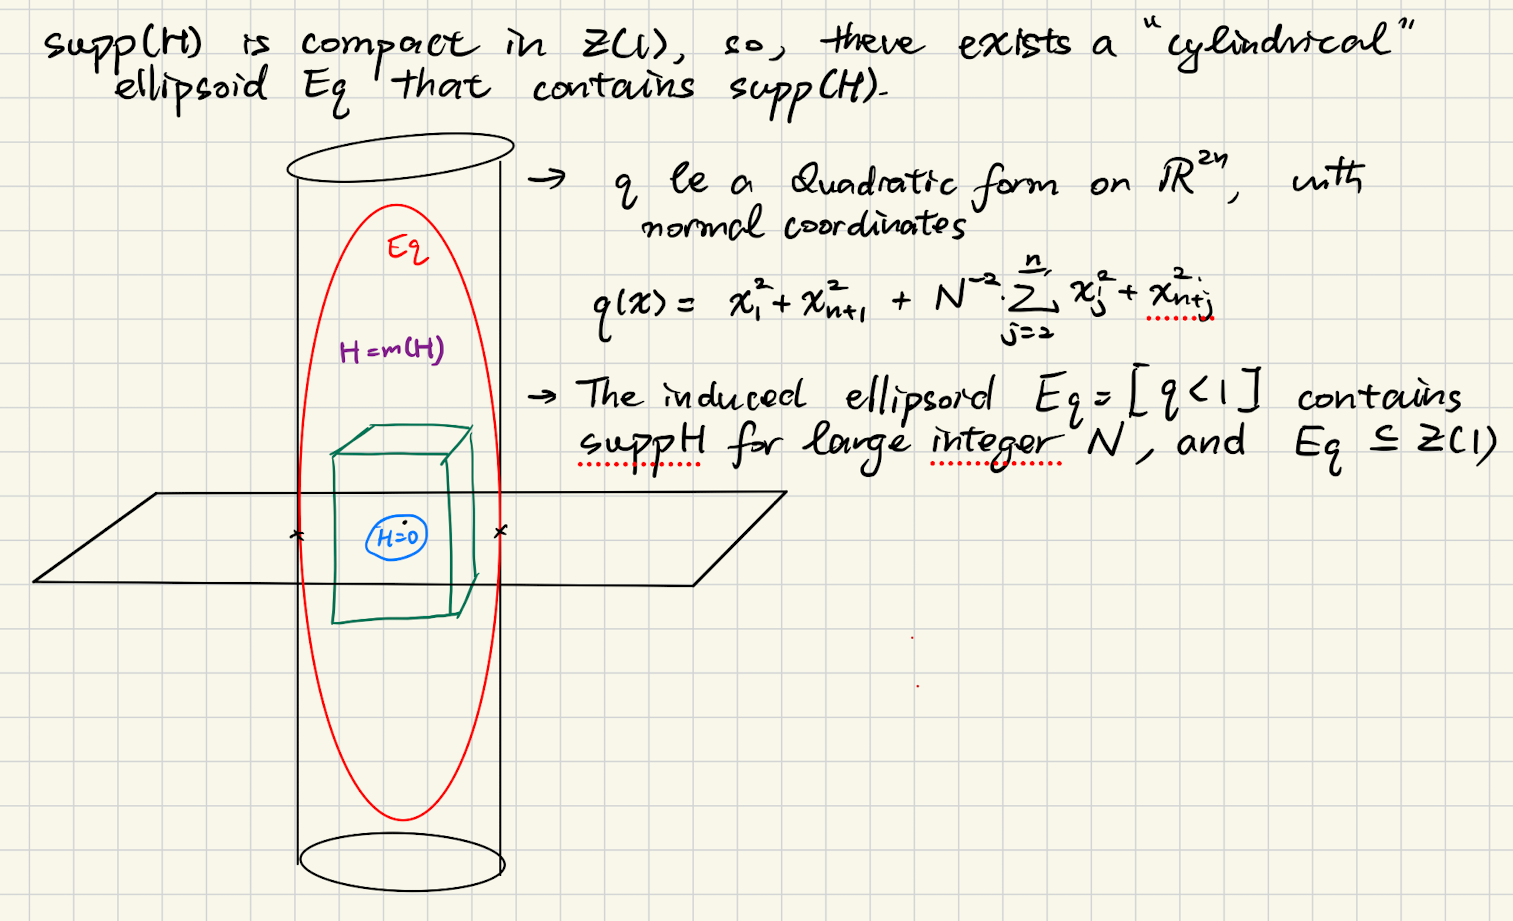 supp(H) is compact in Z(1), so, there exists a "cylindrical"
ellipsoid Eq that contains supp(H).
→ q be a Quadratic form on ℝ²ⁿ, with
normal coordinates
Eq
q(x) = x₁² + xₙ₊₁² + N⁻² · ∑ⱼ₌₂ⁿ xⱼ² + xₙ₊ⱼ²
H = m(H)
→ The induced ellipsoid Eq = [q < 1] contains
suppH for large integer N, and Eq ⊆ Z(1)
H=0